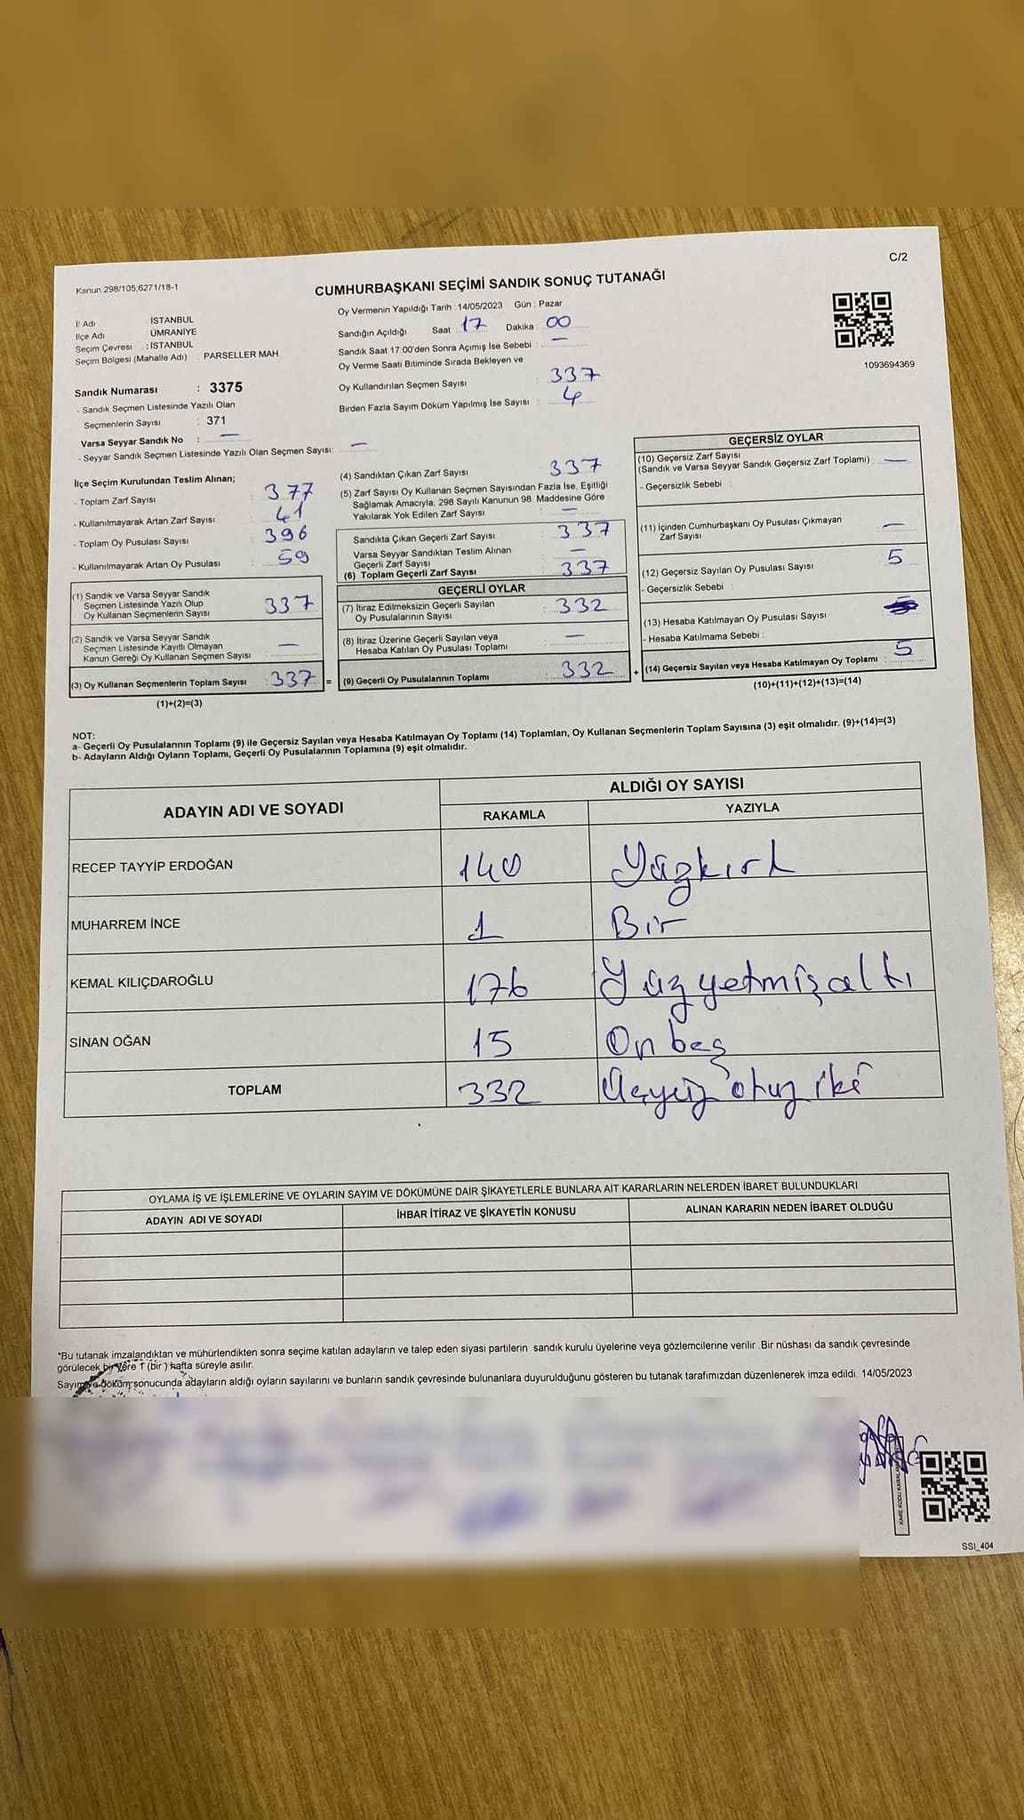 C/2
Kanun 298/105,6271/18-1
CUMHURBAŞKANI SEÇİMİ SANDIK SONUÇ TUTANAĞI
İl Adı İSTANBUL
İlçe Adı ÜMRANİYE
Seçim Çevresi : İSTANBUL
Seçim Bölgesi (Mahalle Adı) : PARSELLER MAH
Sandık Numarası : 3375
- Sandık Seçmen Listesinde Yazılı Olan
Seçmenlerin Sayısı : 371
Varsa Seyyar Sandık No : —
- Seyyar Sandık Seçmen Listesinde Yazılı Olan Seçmen Sayısı: —
Oy Vermenin Yapıldığı Tarih : 14/05/2023 Gün : Pazar
Sandığın Açıldığı Saat 17 Dakika 00
Sandık Saat 17:00'den Sonra Açımış İse Sebebi : —
Oy Verme Saati Bitiminde Sırada Bekleyen ve
Oy Kullandırılan Seçmen Sayısı : 337
Birden Fazla Sayım Döküm Yapılmış İse Sayısı : 4
1093694369
İlçe Seçim Kurulundan Teslim Alınan;
- Toplam Zarf Sayısı : 377
- Kullanılmayarak Artan Zarf Sayısı : 41
- Toplam Oy Pusulası Sayısı : 396
- Kullanılmayarak Artan Oy Pusulası : 59
(1) Sandık ve Varsa Seyyar Sandık
Seçmen Listesinde Yazılı Olup
Oy Kullanan Seçmenlerin Sayısı : 337
(2) Sandık ve Varsa Seyyar Sandık
Seçmen Listesinde Kayıtlı Olmayan
Kanun Gereği Oy Kullanan Seçmen Sayısı —
(3) Oy Kullanan Seçmenlerin Toplam Sayısı : 337 =
(1)+(2)=(3)
(4) Sandıktan Çıkan Zarf Sayısı : 337
(5) Zarf Sayısı Oy Kullanan Seçmen Sayısından Fazla İse, Eşitliği
Sağlamak Amacıyla, 298 Sayılı Kanunun 98. Maddesine Göre
Yakılarak Yok Edilen Zarf Sayısı : —
Sandıkta Çıkan Geçerli Zarf Sayısı : 337
Varsa Seyyar Sandıktan Teslim Alınan
Geçerli Zarf Sayısı : —
(6) Toplam Geçerli Zarf Sayısı : 337
GEÇERLİ OYLAR
(7) İtiraz Edilmeksizin Geçerli Sayılan
Oy Pusulalarının Sayısı : 332
(8) İtiraz Üzerine Geçerli Sayılan veya
Hesaba Katılan Oy Pusulası Toplamı : —
(9) Geçerli Oy Pusulalarının Toplamı : 332 +
GEÇERSİZ OYLAR
(10) Geçersiz Zarf Sayısı
(Sandık ve Varsa Seyyar Sandık Geçersiz Zarf Toplamı) : —
- Geçersizlik Sebebi :
(11) İçinden Cumhurbaşkanı Oy Pusulası Çıkmayan
Zarf Sayısı : —
(12) Geçersiz Sayılan Oy Pusulası Sayısı : 5
- Geçersizlik Sebebi :
(13) Hesaba Katılmayan Oy Pusulası Sayısı :
- Hesaba Katılmama Sebebi :
(14) Geçersiz Sayılan veya Hesaba Katılmayan Oy Toplamı : 5
(10)+(11)+(12)+(13)=(14)
NOT:
a- Geçerli Oy Pusulalarının Toplamı (9) ile Geçersiz Sayılan veya Hesaba Katılmayan Oy Toplamı (14) Toplamları, Oy Kullanan Seçmenlerin Toplam Sayısına (3) eşit olmalıdır. (9)+(14)=(3)
b- Adayların Aldığı Oyların Toplamı, Geçerli Oy Pusulalarının Toplamına (9) eşit olmalıdır.
ADAYIN ADI VE SOYADI ALDIĞI OY SAYISI
RAKAMLA YAZIYLA
RECEP TAYYİP ERDOĞAN 140 Yüzkırk
MUHARREM İNCE 1 Bir
KEMAL KILIÇDAROĞLU 176 Yüzyetmişaltı
SİNAN OĞAN 15 On beş
TOPLAM 332 Üçyüz otuz iki
OYLAMA İŞ VE İŞLEMLERİNE VE OYLARIN SAYIM VE DÖKÜMÜNE DAİR ŞİKAYETLERLE BUNLARA AİT KARARLARIN NELERDEN İBARET BULUNDUKLARI
ADAYIN ADI VE SOYADI İHBAR İTİRAZ VE ŞİKAYETİN KONUSU ALINAN KARARIN NEDEN İBARET OLDUĞU
*Bu tutanak imzalandıktan ve mühürlendikten sonra seçime katılan adayların ve talep eden siyasi partilerin sandık kurulu üyelerine veya gözlemcilerine verilir. Bir nüshası da sandık çevresinde
görülecek bir yere 1 (bir) hafta süreyle asılır.
Sayım ve döküm sonucunda adayların aldığı oyların sayılarını ve bunların sandık çevresinde bulunanlara duyurulduğunu gösteren bu tutanak tarafımızdan düzenlenerek imza edildi. 14/05/2023
SSI_404